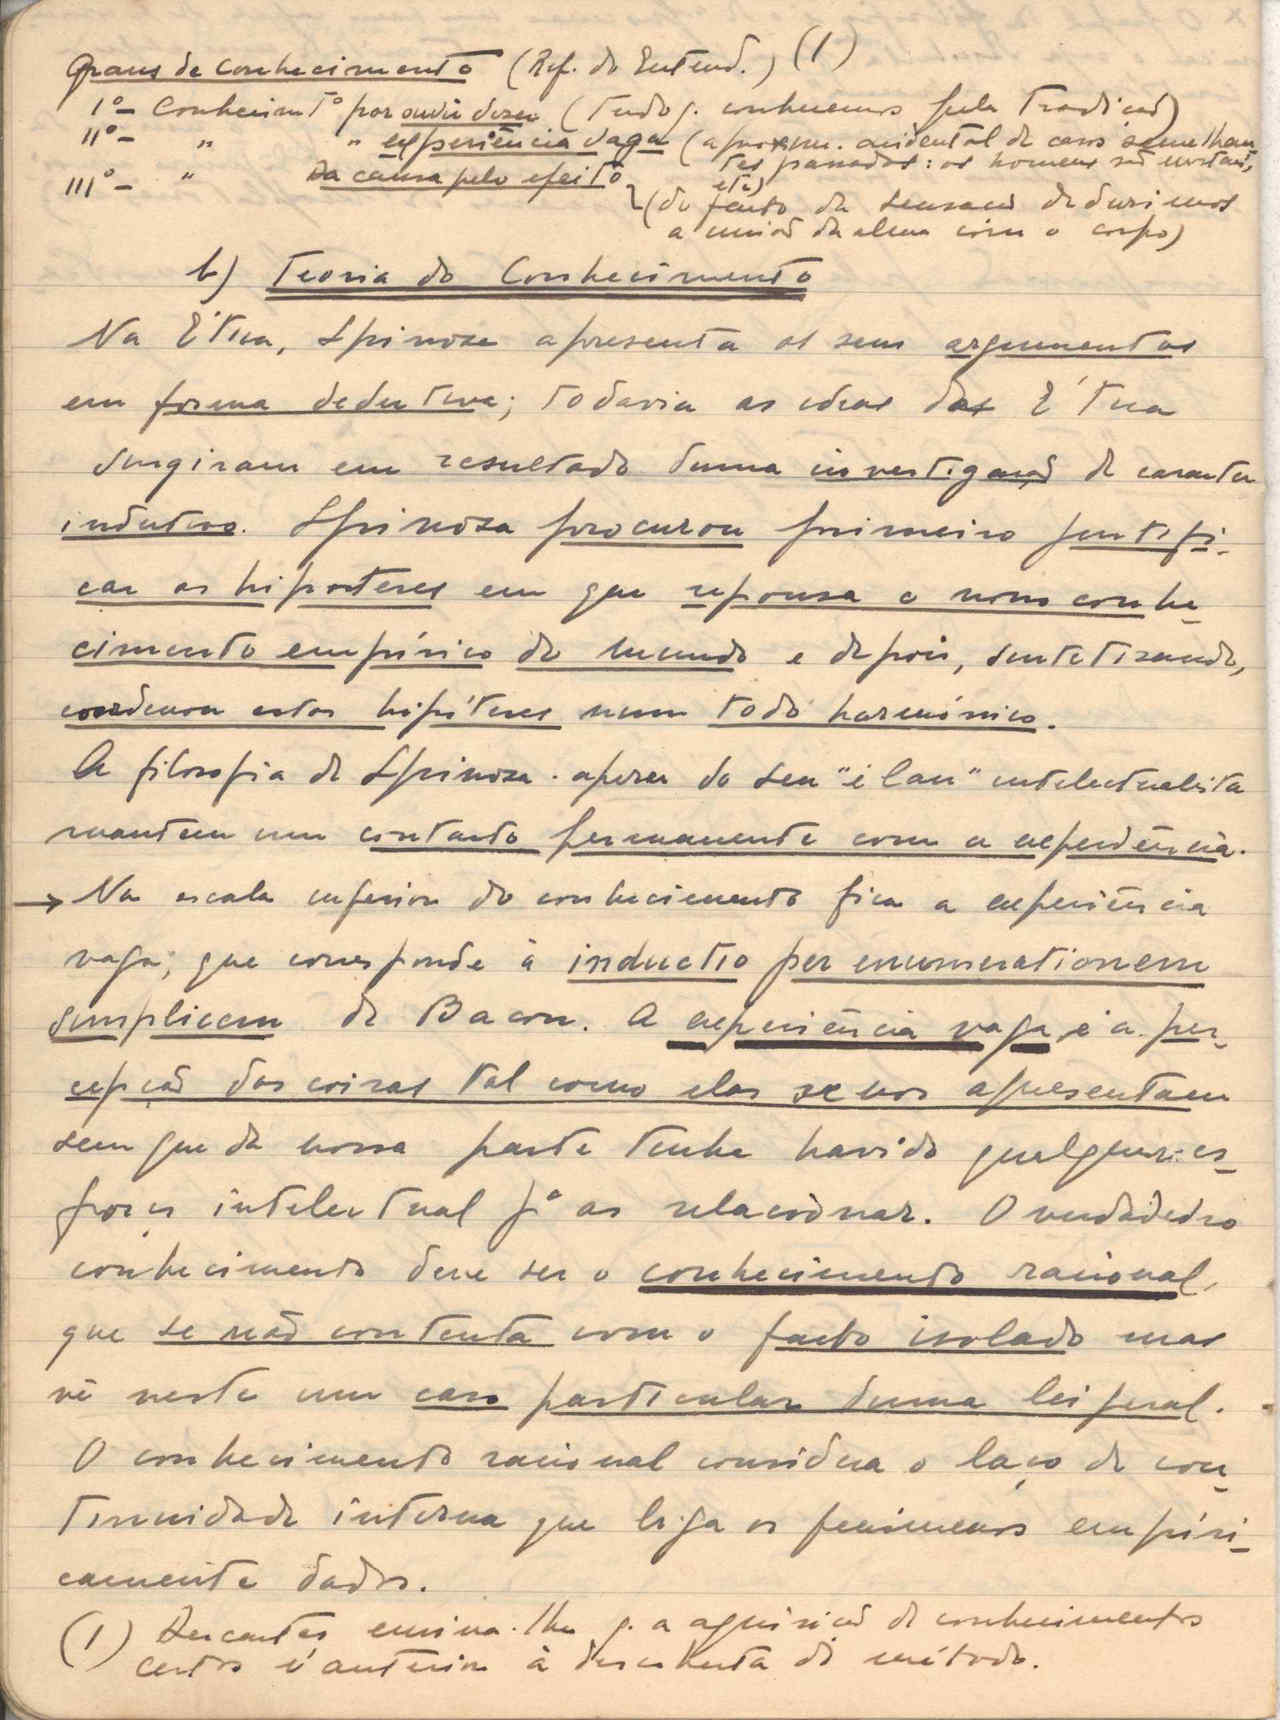 Graus de conhecimento (Ref. do Entend.) (1)
Iº - Conhecimtº por ouvir dizer (tudo q. conhecemos pela tradição)
IIº - " " experiência vaga (aproxim. acidental de casos semelhan-
tes passados: os homens são mortais,
etc)
IIIº - " da causa pelo efeito
(do facto da sensação deduzimos
a união da alma com o corpo)
b) Teoria do Conhecimento
Na Ética, Spinoza apresenta os seus argumentos
em forma dedutiva; todavia as ideias das Ética
surgiram em resultado duma investigação de caracter
indutivo. Spinoza procurou primeiro justifi-
car as hipóteses em que repousa o nosso conhe-
cimento empírico do mundo e depois, sintetizando,
condensou estas hipóteses num todo harmónico.
A filosofia de Spinoza apesar do seu "élan" intelectualista
mantem um contacto permanente com a experiência.
→ Na escala inferior do conhecimento fica a experiência
vaga; que corresponde à inductio per enumerationem
simplicem de Bacon. A experiência vaga é a per-
cepção das coisas tal como elas se nos apresentam
sem que da nossa parte tenha havido qualquer es-
forço intelectual pª as relacionar. O verdadeiro
conhecimento deve ser o conhecimento racional,
que se não contenta com o facto isolado mas
vê neste um caso particular duma lei geral.
O conhecimento racional considera o laço de con-
tinuidade interna que liga os fenómenos empíri-
camente dados.
(1) Descartes ensina-lhe q. a aquisição de conhecimentos
certos é anterior à descoberta do método.